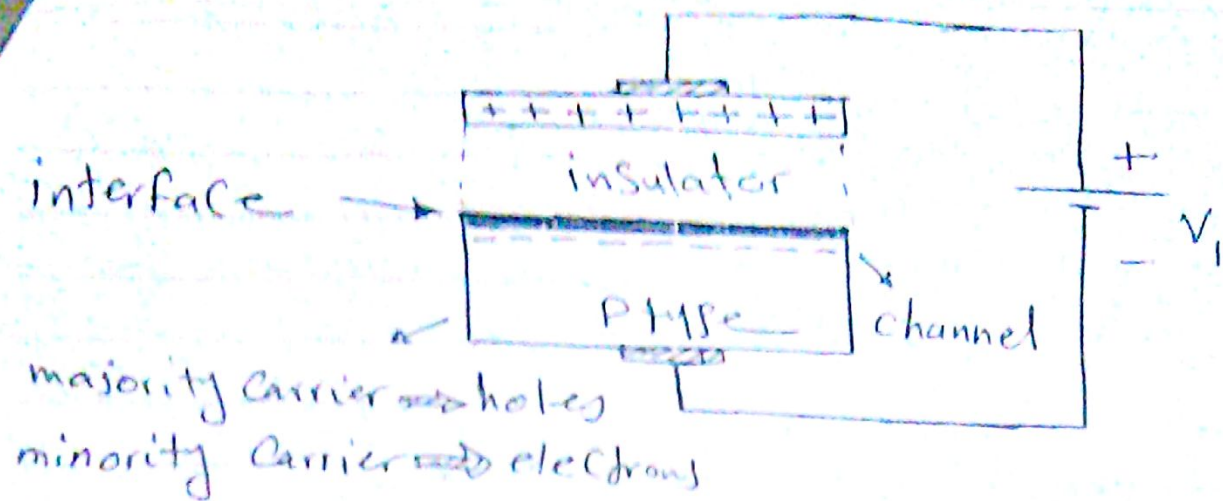 + + + + + + + +
insulator
interface
+
V1
-
P type
channel
majority Carrier ⇒ holes
minority Carrier ⇒ electrons